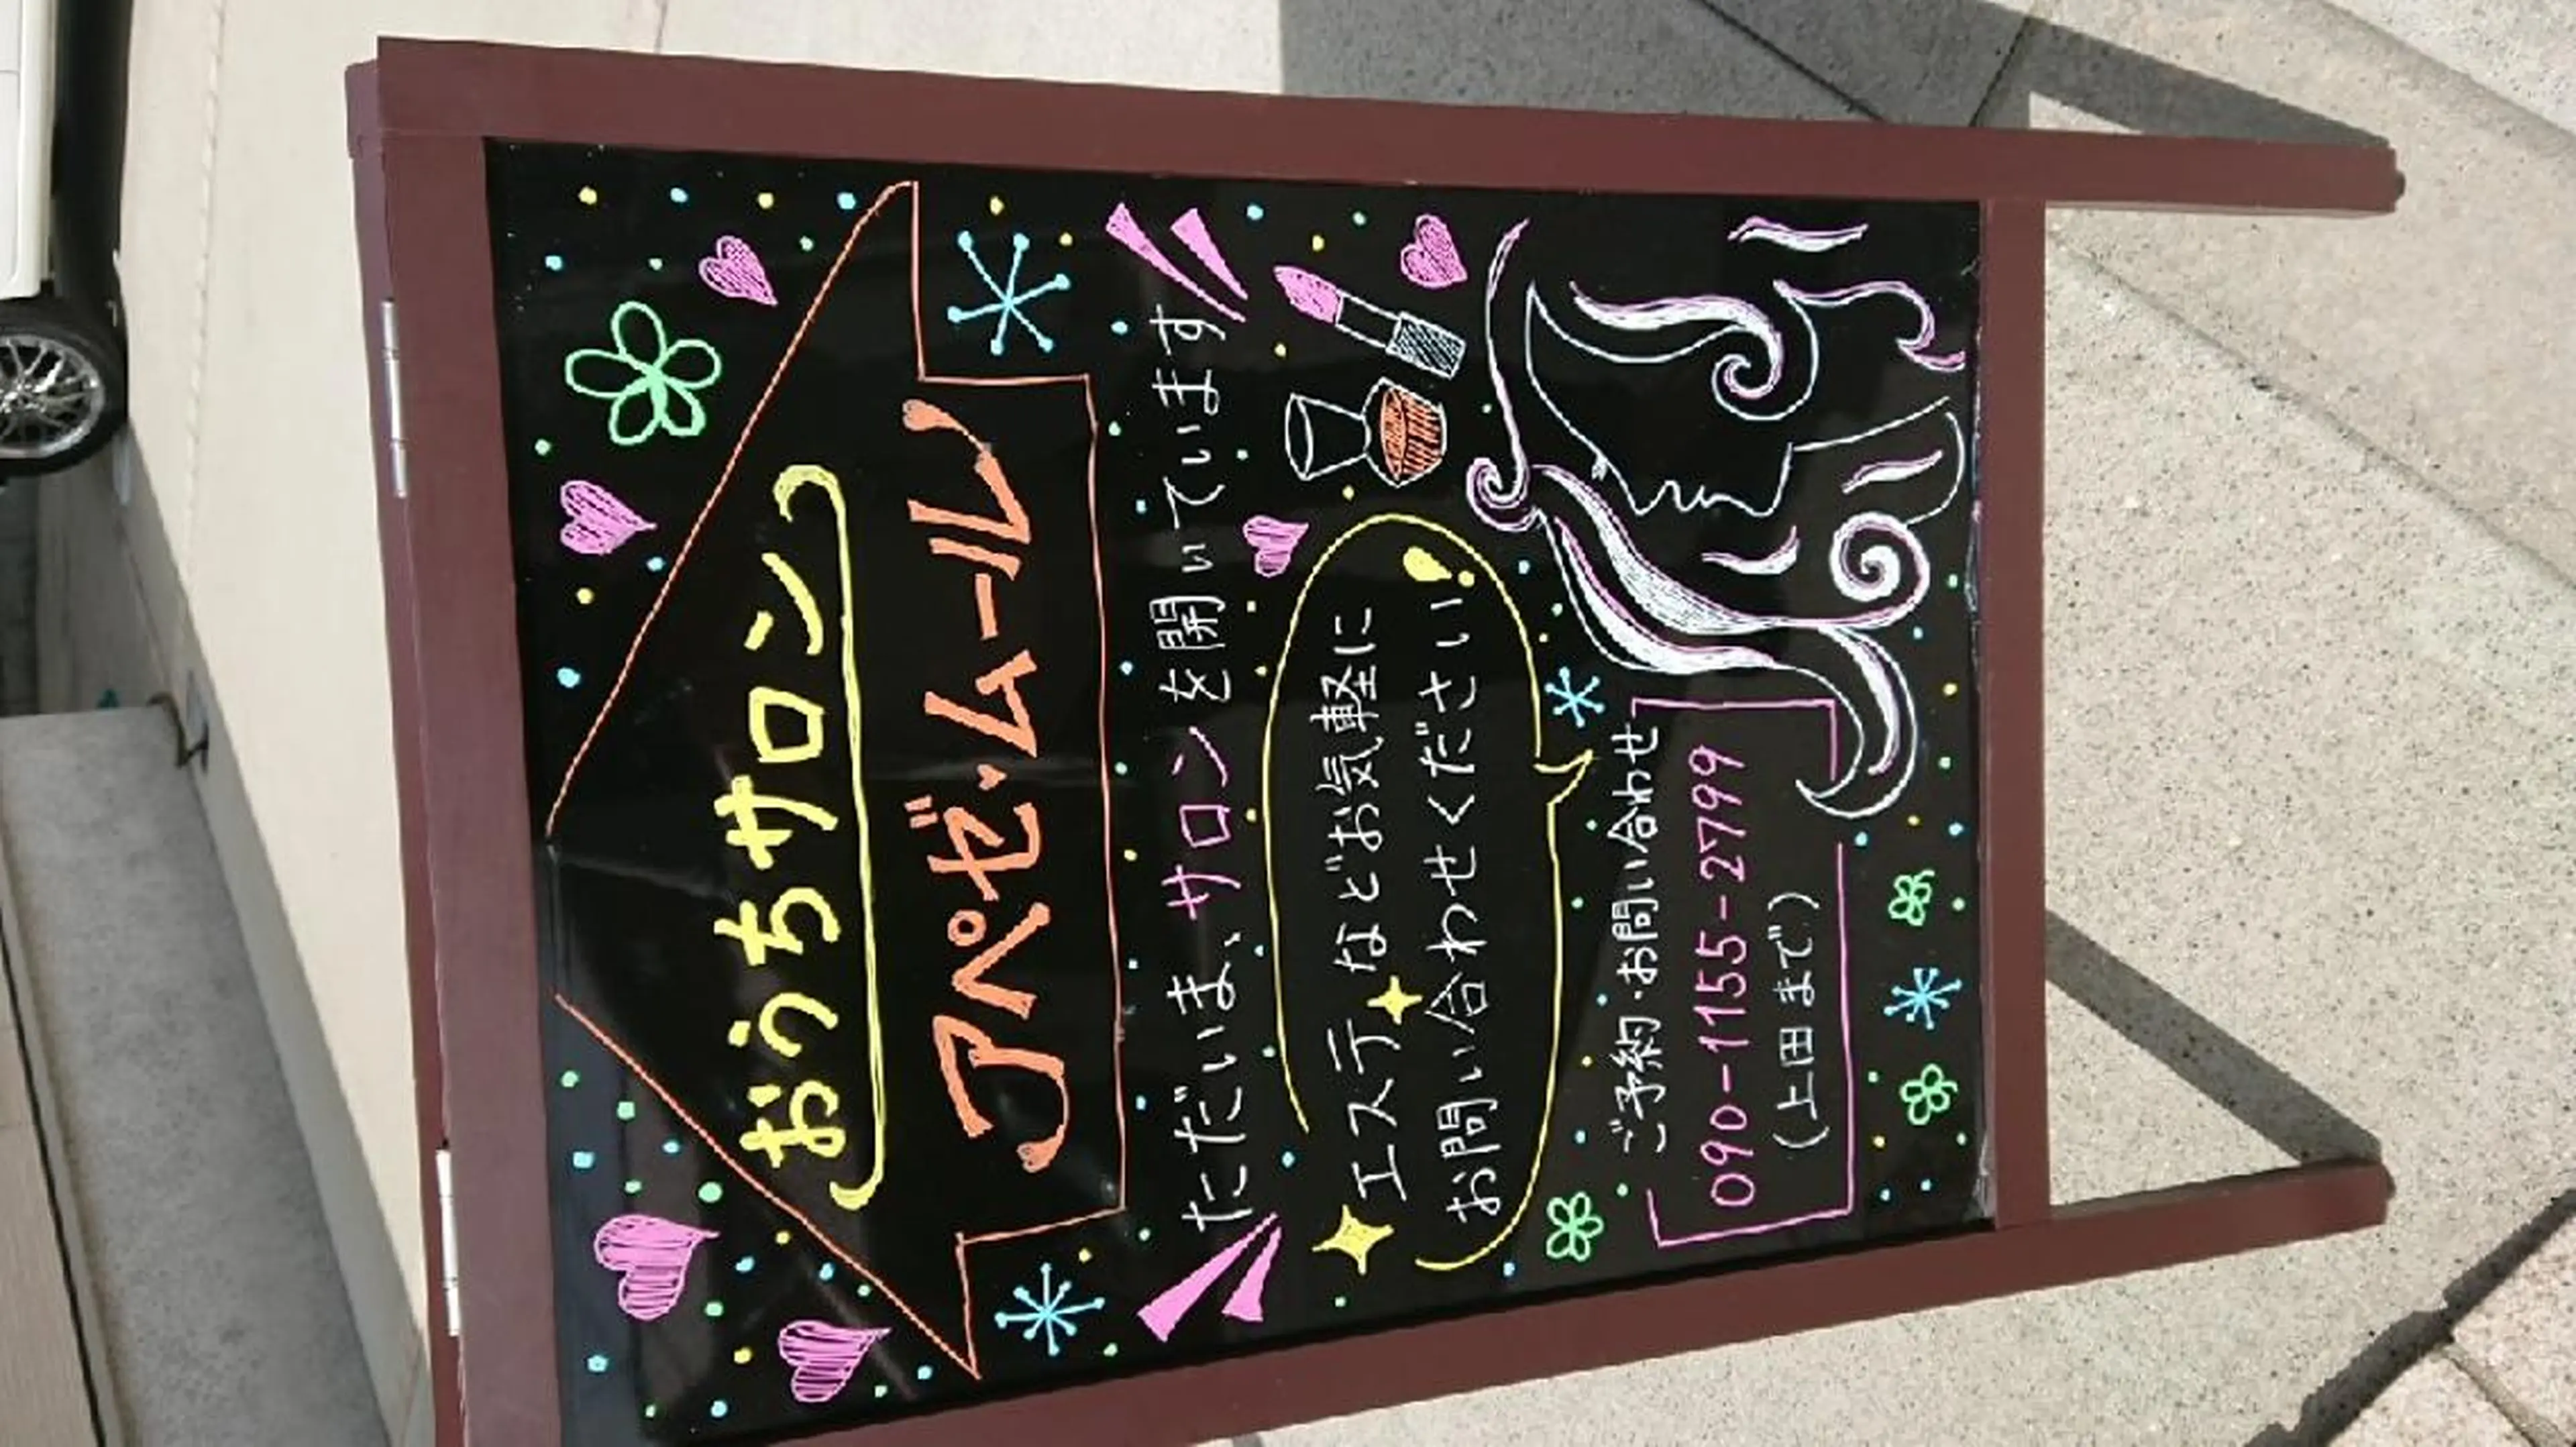 おうちサロン
アペゼ・ムール
ただいま、サロンを開いています
エステなどお気軽に
お問い合わせください!
ご予約・お問い合わせ
090-1155-2799
(上田まで)